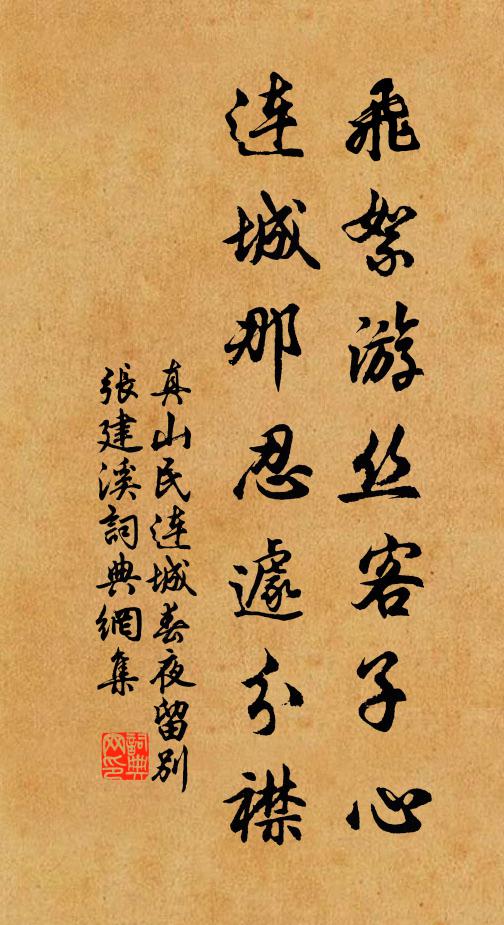 飛絮游丝客子心
連城那忍遽分襟
真山民連城春夜留別
張建溪詞典網集
詞典网印